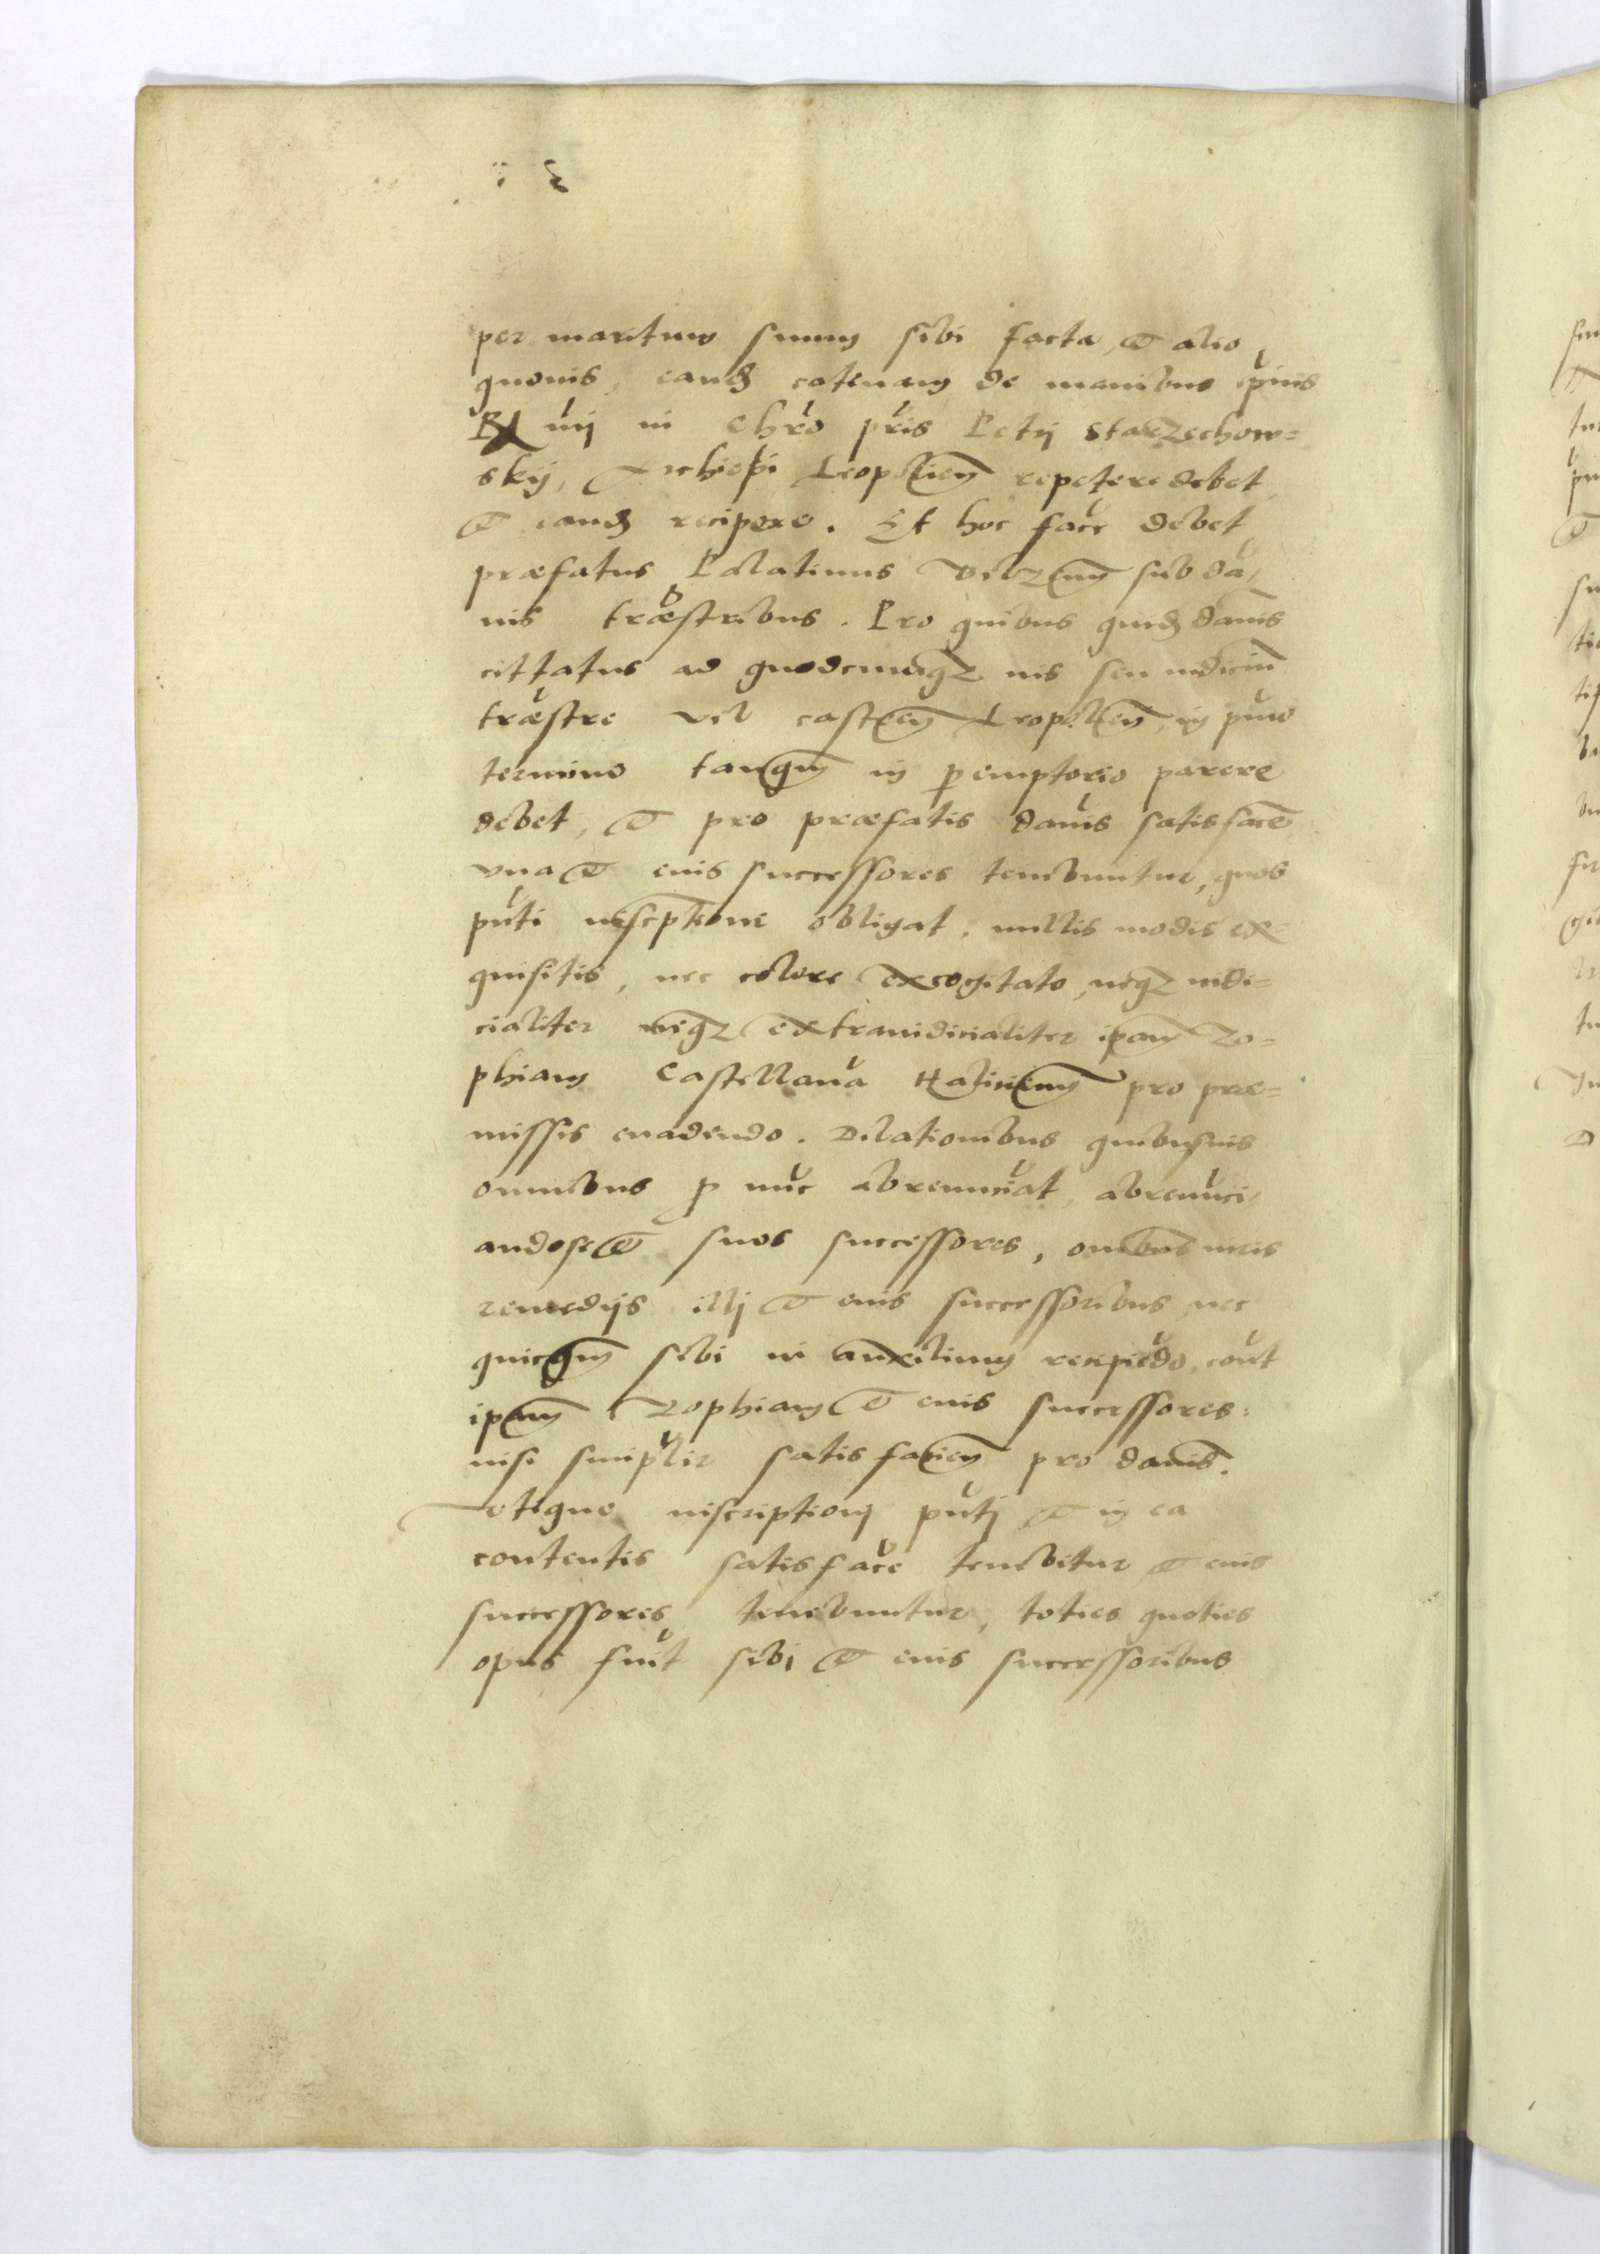 per maritum suum sibi facta, et alio
quovis, eand catenam de manibus ipius
in Chro pris Petri Starzechow=
skij, Archiepi Leopolien repetere debet
et eand recipere. Et hoc face debet
præfatus Palatinus Belzen sub da,
nis træstribus. Pro quibus quid danis
cittatus ad quodcunqz ius seu iudicium
træstre vel castren Leopolien, in pmo
termino tanqm in peremptorio parere
debet, et pro præfatis danis satisface
vna et eius successores tenebuntur, quos
pnti inscptione obligat. nullis modis ex=
quisitis, nec colore excogitato, neqz iudi=
cialiter neqz extraiudicialiter ipam Zo=
phiam Castellana Halicien pro præ=
missis euadendo. Dilationibus quibusuis
omnibus p nuc abrenunciat, abrenuci,
ando se et suos successores, omibus iuris
remedijs illj et eius successoribus nec
quicqm sibi in auxilium recipiedo, cont
ipam Zophiam et eius successores:
nisi simplir satisfacien pro danis.
Totique inscriptionj pntj et in ea
contentis satisface tenebitur et eius
successores tenebuntur, toties quoties
opus fuit sibi et eius successoribus